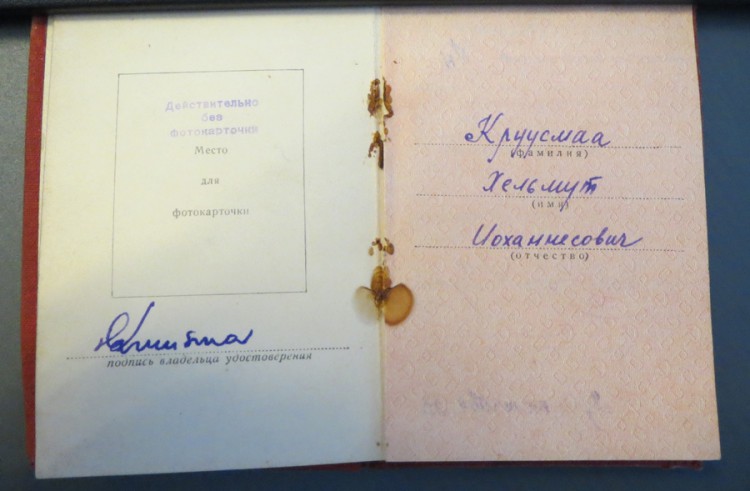 Действительно
без
фотокарточки
Место
для
фотокарточки
подпись владельца удостоверения
Круусмаа
(фамилия)
Хельмут
(имя)
Иоханнесович
(отчество)